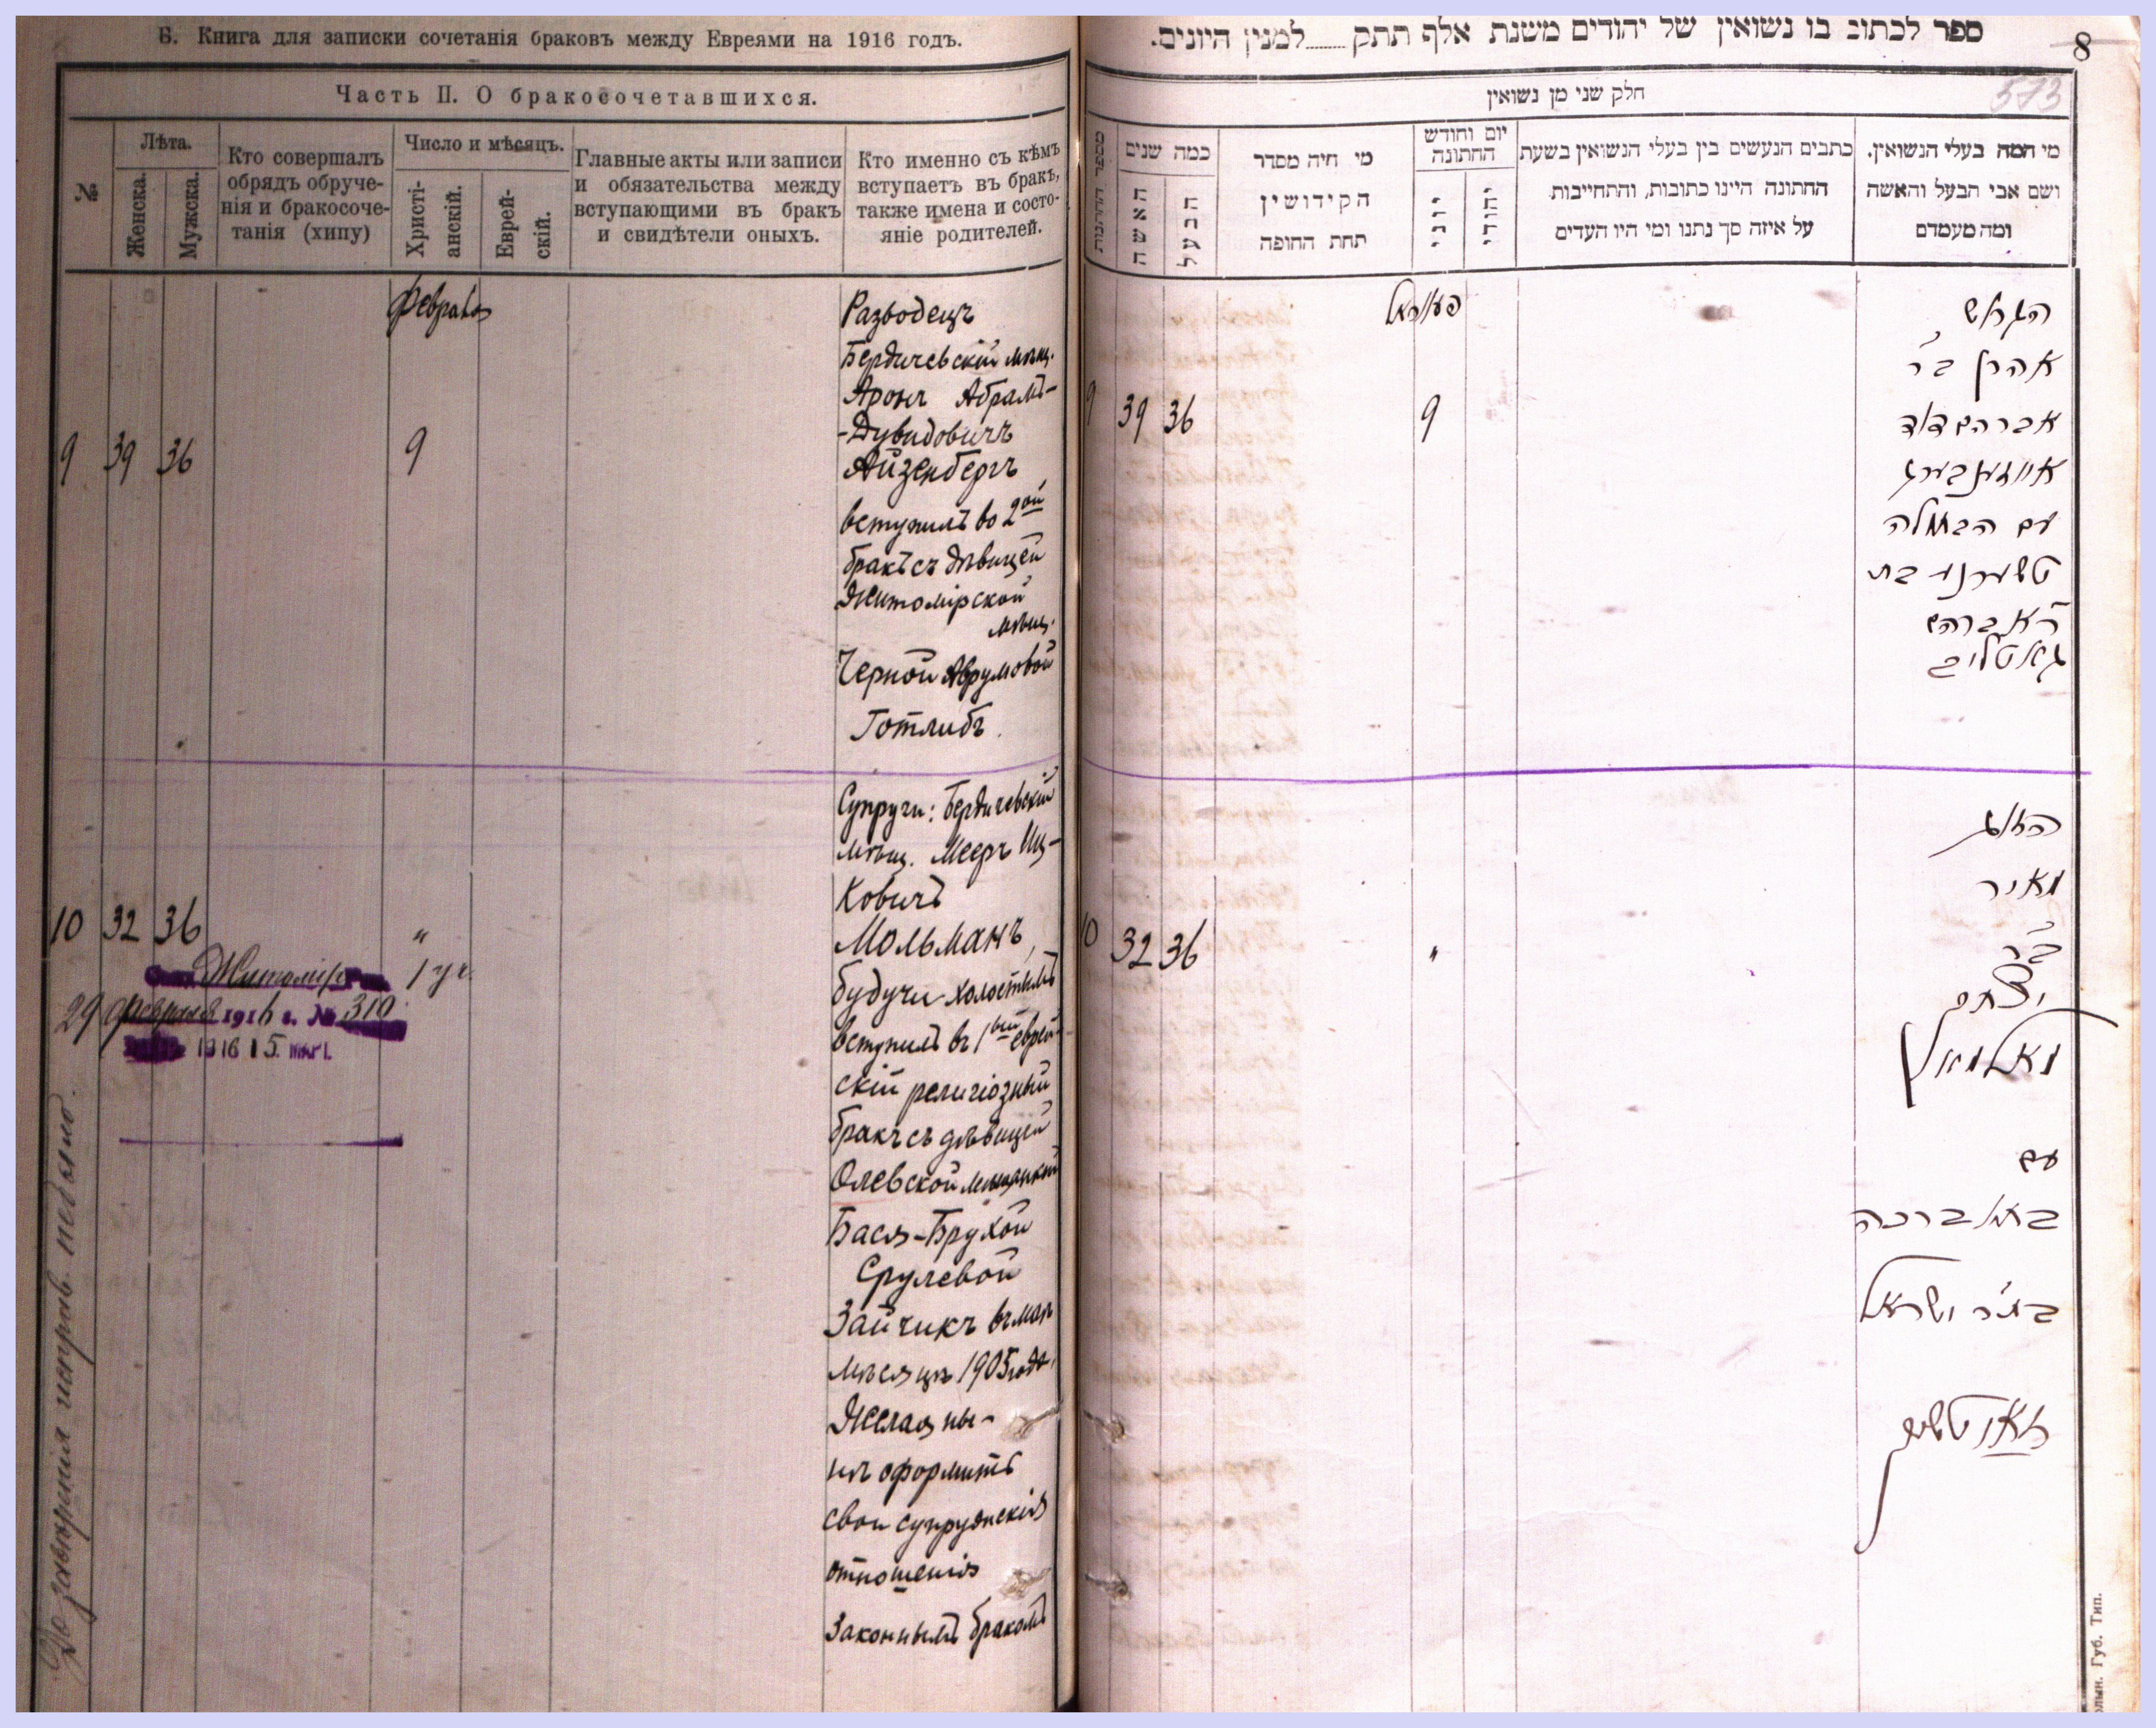 Б. Книга для записки сочетанія браковъ между Евреями на 1916 годъ.
Часть II. О бракосочетавшихся.
№
Лѣта.
Женска.
Мужска.
Кто совершалъ
обрядъ обруче-
нія и бракосоче-
танія (хипу)
Число и мѣсяцъ.
Христі-
анскій.
Еврей-
скій.
Главные акты или записи
и обязательства между
вступающими въ бракъ
и свидѣтели оныхъ.
Кто именно съ кѣмъ
вступаетъ въ бракъ,
также имена и состо-
яніе родителей.
Февраля
9 39 36 9
Разводецъ
Бердичевскій мѣщ.
Аронъ Абрамъ-
-Дувидовичъ
Айзенбергъ
вступилъ во 2ой
бракъ съ дѣвицей
Житомірской
мѣщ.
Черной Аврумовой
Готлибъ.
10 32 36 "
Супруги: Бердичевскій
мѣщ. Мееръ Иц-
ковичъ
Мольманъ,
будучи холостымъ
вступилъ въ 1ый еврей-
скій религіозный
бракъ съ дѣвицей
Олевской мѣщанкой
Бася-Брухой
Срулевой
Зайчикъ въ маѣ
мѣсяцѣ 1905 года,
Желая ны-
нѣ оформить
свои супружескія
отношенія
Законнымъ бракомъ
Житомір 1 уч.
29 февраля 1916 г. № 310
1916 15 МАР.
ספר לכתוב בו נשואין של יהודים משנת אלף תתק למנין היונים.
8
573
חלק שני מן נשואין
מספר החתונות
כמה שנים
האשה
הבעל
מי היה מסדר
הקידושין
תחת החופה
יום וחודש
החתונה
יוני
יהודי
כתבים הנעשים בין בעלי הנשואין בשעת
החתונה היינו כתובות, והתחייבות
על איזה סך נתנו ומי היו העדים
מי המה בעלי הנשואין.
ושם אבי הבעל והאשה
ומה מעמדם
פעווראל
9 39 36 9
הגרוש
אהרן ב״ר
אברהם דוד
אייזענבערג
עם הבתולה
טשערנע בת
ר׳ אברהם
גאטליב
10 32 36 "
הזוג
מאיר
ב״ר
יצחק
מאלמאן
עם
באסא ברכה
בת״ר ישראל
זאיטשיק
Губ. Тип.